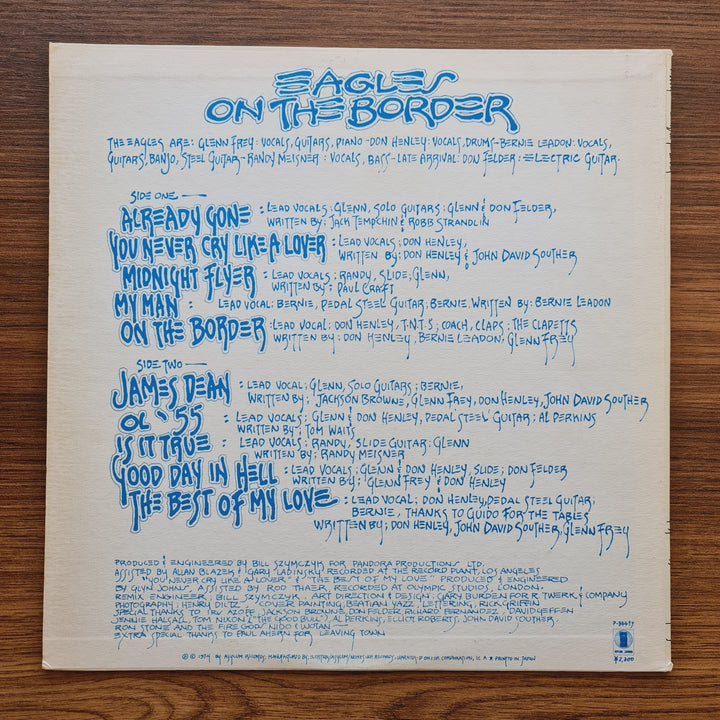 EAGLES
ON THE BORDER
THE EAGLES ARE: GLENN FREY: VOCALS, GUITARS, PIANO - DON HENLEY: VOCALS, DRUMS - BERNIE LEADON: VOCALS,
GUITARS, BANJO, STEEL GUITAR - RANDY MEISNER: VOCALS, BASS - LATE ARRIVAL: DON FELDER: ELECTRIC GUITAR.
SIDE ONE —
ALREADY GONE : LEAD VOCALS: GLENN, SOLO GUITARS: GLENN & DON FELDER,
WRITTEN BY; JACK TEMPCHIN & ROBB STRANDLIN
YOU NEVER CRY LIKE A LOVER : LEAD VOCALS: DON HENLEY,
WRITTEN BY: DON HENLEY & JOHN DAVID SOUTHER
MIDNIGHT FLYER : LEAD VOCALS; RANDY, SLIDE; GLENN,
WRITTEN BY: PAUL CRAFT
MY MAN : LEAD VOCAL: BERNIE, PEDAL STEEL GUITAR: BERNIE, WRITTEN BY: BERNIE LEADON
ON THE BORDER : LEAD VOCAL: DON HENLEY, T.N.T.S; COACH, CLAPS: THE CLAPETTS
WRITTEN BY: DON HENLEY, BERNIE LEADON, GLENN FREY
SIDE TWO —
JAMES DEAN : LEAD VOCAL: GLENN, SOLO GUITARS: BERNIE,
WRITTEN BY: JACKSON BROWNE, GLENN FREY, DON HENLEY, JOHN DAVID SOUTHER
OL '55 : LEAD VOCALS: GLENN & DON HENLEY, PEDAL STEEL GUITAR: AL PERKINS
WRITTEN BY: TOM WAITS
IS IT TRUE : LEAD VOCALS: RANDY, SLIDE GUITAR: GLENN
WRITTEN BY: RANDY MEISNER
GOOD DAY IN HELL : LEAD VOCALS; GLENN & DON HENLEY, SLIDE; DON FELDER
WRITTEN BY: GLENN FREY & DON HENLEY
THE BEST OF MY LOVE : LEAD VOCAL; DON HENLEY, PEDAL STEEL GUITAR;
BERNIE, THANKS TO GUIDO FOR THE TABLES
WRITTEN BY; DON HENLEY, JOHN DAVID SOUTHER, GLENN FREY
PRODUCED & ENGINEERED BY BILL SZYMCZYK FOR PANDORA PRODUCTIONS LTD.
ASSISTED BY ALLAN BLAZEK & GARY LADINSKY RECORDED AT THE RECORD PLANT, LOS ANGELES
"YOU NEVER CRY LIKE A LOVER" & "THE BEST OF MY LOVE" PRODUCED & ENGINEERED
BY GLYN JOHNS, ASSISTED BY ROD THAER, RECORDED AT OLYMPIC STUDIOS, LONDON.
REMIX ENGINEER: BILL SZYMCZYK. ART DIRECTION & DESIGN: GARY BURDEN FOR R. TWERK & COMPANY
PHOTOGRAPHY: HENRY DILTZ COVER PAINTING, BEATIAN YAZZ, LETTERING, RICK GRIFFIN
SPECIAL THANKS TO IRV AZOFF, JACKSON BROWNE, DON FELDER, RICHARD FERNANDEZ, DAVID GEFFEN
JENNIE HALSALL, TOM NIXON ("THE GOOD BULL"), AL PERKINS, ELLIOT ROBERTS, JOHN DAVID SOUTHER,
RON STONE AND THE FIRE GOD/ NIDO & WOTAN
EXTRA SPECIAL THANKS TO PAUL AHERN FOR LEAVING TOWN
¥2,200
℗ © 1974 BY ASYLUM RECORDS, MANUFACTURED BY WARNER-PIONEER CORPORATION, PRINTED IN JAPAN